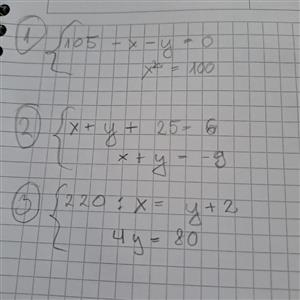 1 105 - x - y = 0
x² = 100
2 x + y + 25 = 6
x + y = -9
3 220 : x = y + 2
4y = 80